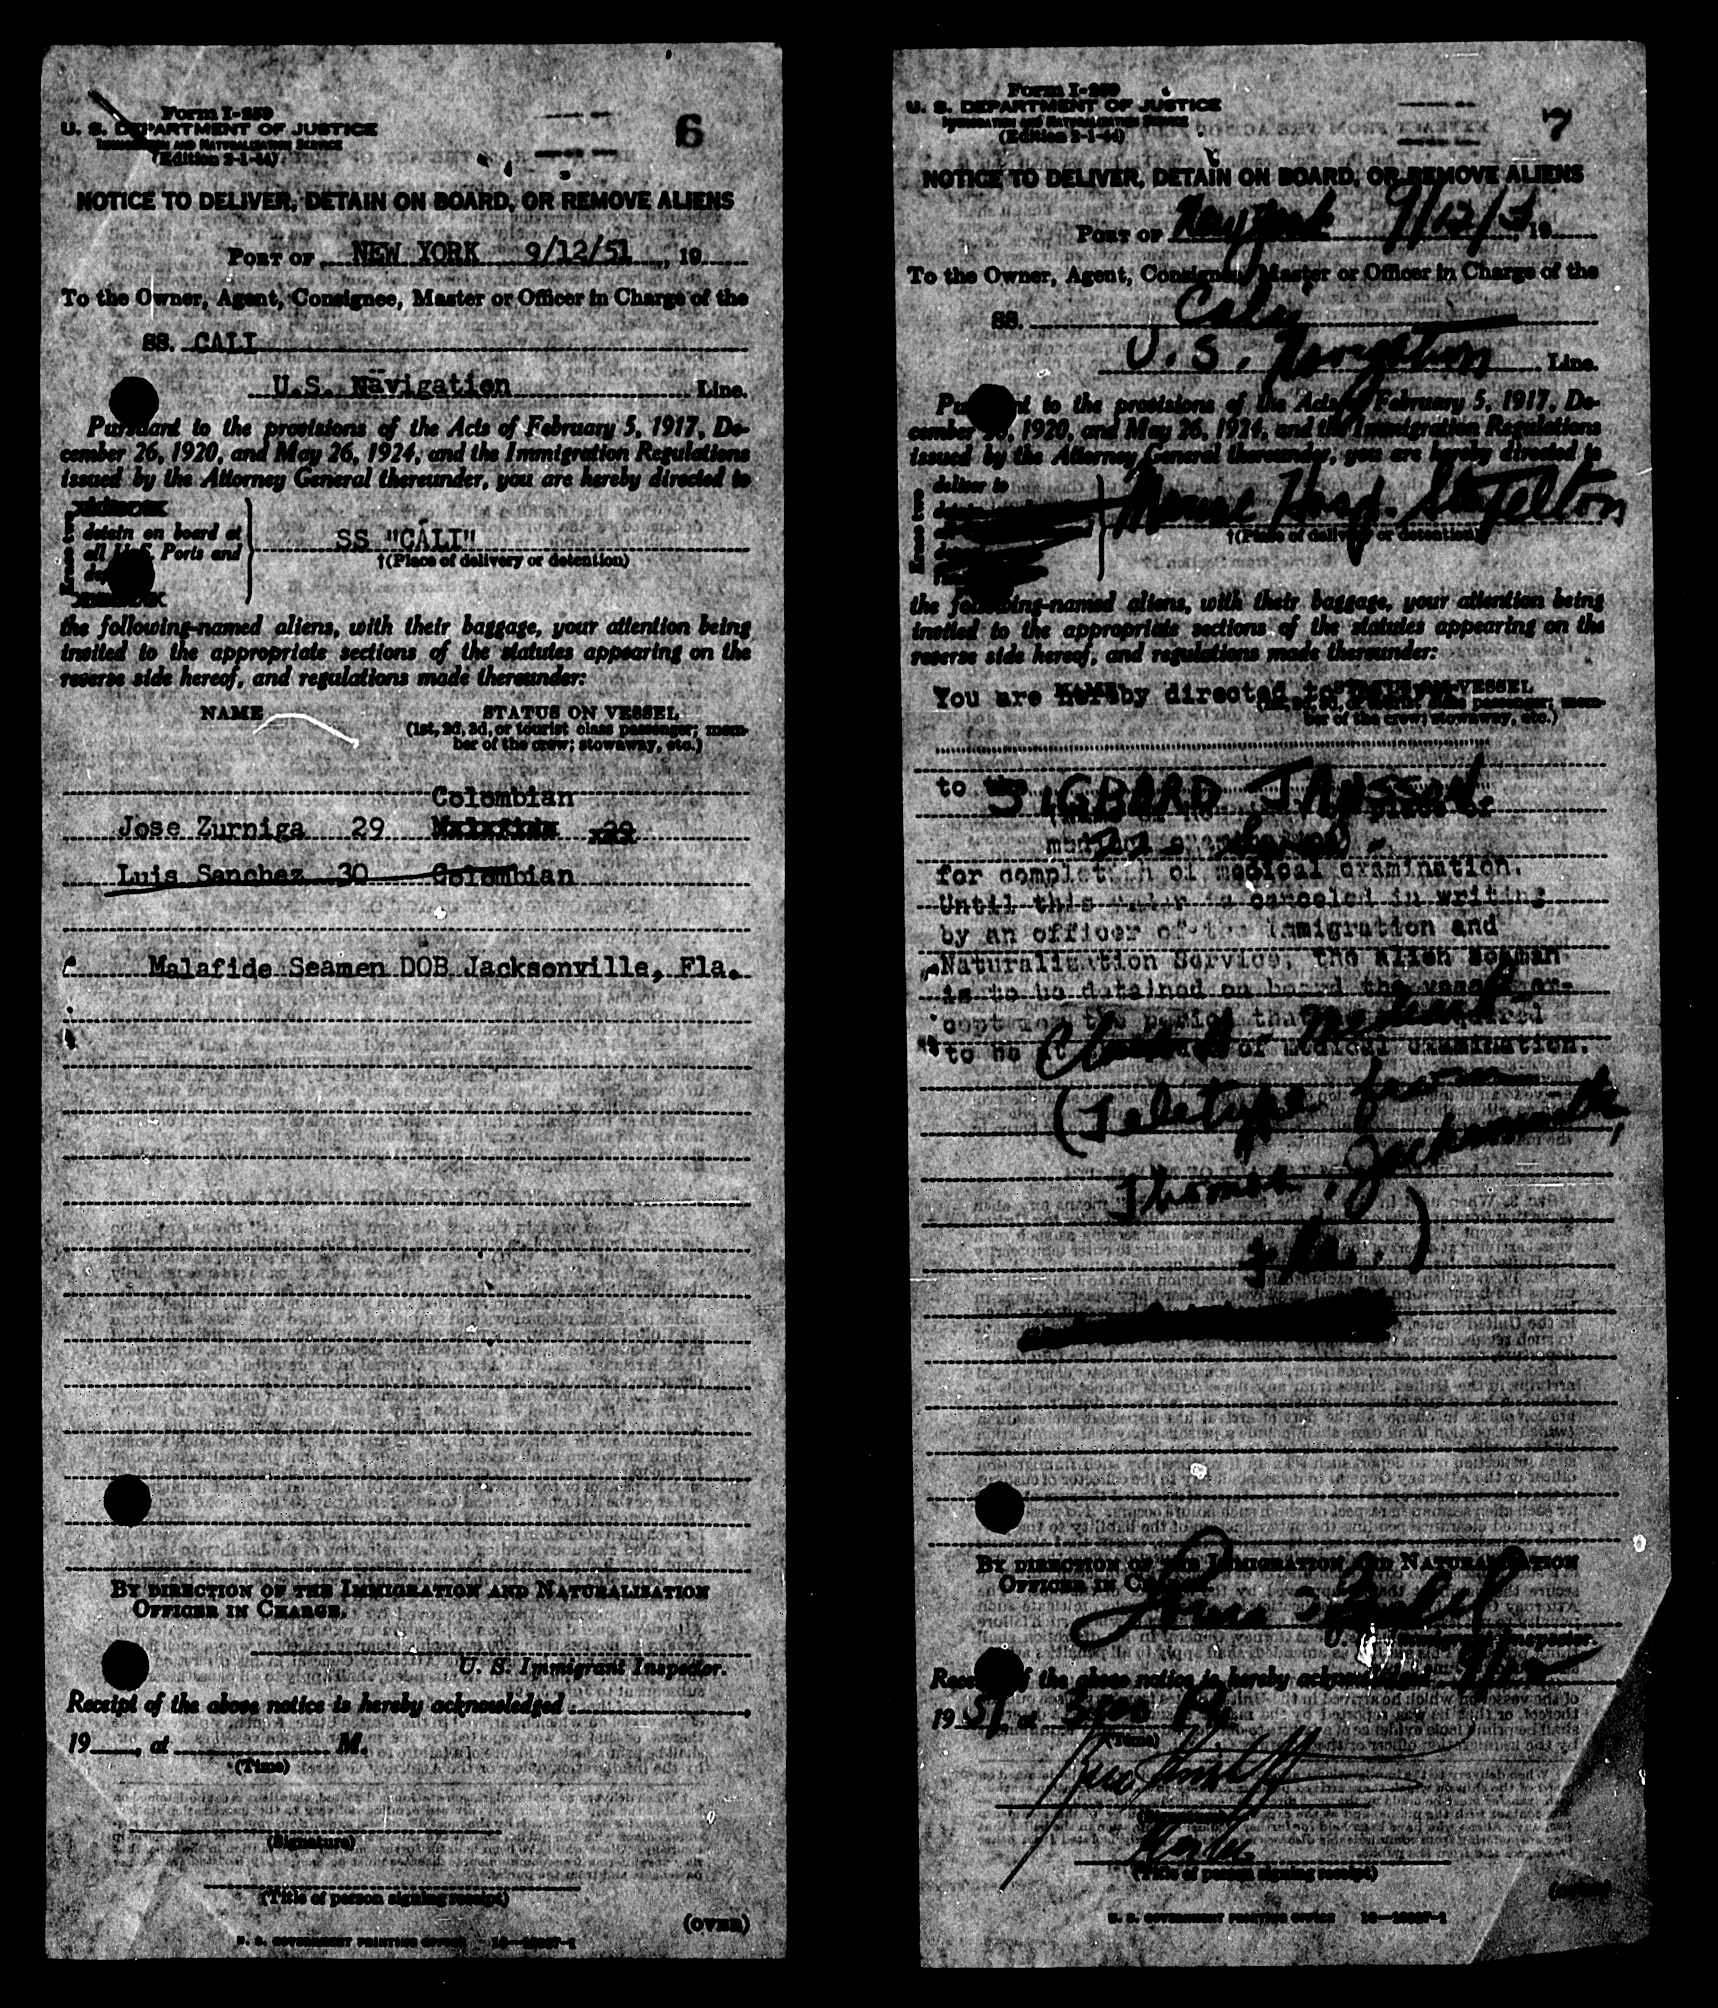 Form I-259
U. S. DEPARTMENT OF JUSTICE
IMMIGRATION AND NATURALIZATION SERVICE
(Edition 2-1-44)
6
NOTICE TO DELIVER, DETAIN ON BOARD, OR REMOVE ALIENS
PORT OF NEW YORK 9/12/51, 19
To the Owner, Agent, Consignee, Master or Officer in Charge of the
SS. CALI
U.S. Navigation Line.
Pursuant to the provisions of the Acts of February 5, 1917, De-
cember 26, 1920, and May 26, 1924, and the Immigration Regulations
issued by the Attorney General thereunder, you are hereby directed to
detain on board at
all U.S. Ports and
SS "CALI"
†(Place of delivery or detention)
the following-named aliens, with their baggage, your attention being
invited to the appropriate sections of the statutes appearing on the
reverse side hereof, and regulations made thereunder:
NAME STATUS ON VESSEL
(1st, 2d, 3d, or tourist class passenger; mem-
ber of the crew; stowaway, etc.)
Colombian
Jose Zurniga 29
Luis Sanchez 30 Colombian
Malafide Seamen DOB Jacksonville, Fla.
BY DIRECTION OF THE IMMIGRATION AND NATURALIZATION
OFFICER IN CHARGE.
U. S. Immigrant Inspector.
Receipt of the above notice is hereby acknowledged
19 , at M.
(Time)
(Signature)
(Title of person signing receipt)
(OVER)
U. S. GOVERNMENT PRINTING OFFICE
Form I-259
U. S. DEPARTMENT OF JUSTICE
IMMIGRATION AND NATURALIZATION SERVICE
(Edition 2-1-44)
7
NOTICE TO DELIVER, DETAIN ON BOARD, OR REMOVE ALIENS
PORT OF New York 9/12/51, 19
To the Owner, Agent, Consignee, Master or Officer in Charge of the
SS. Cali
U.S. Navigation Line.
Pursuant to the provisions of the Acts of February 5, 1917, De-
cember 26, 1920, and May 26, 1924, and the Immigration Regulations
issued by the Attorney General thereunder, you are hereby directed to
deliver to
Marine Hosp. Stapelton
†(Place of delivery or detention)
the following-named aliens, with their baggage, your attention being
invited to the appropriate sections of the statutes appearing on the
reverse side hereof, and regulations made thereunder:
NAME STATUS ON VESSEL
You are hereby directed to
ber of the crew; stowaway, etc.)
to the
SIGBARD JANSSON
for completion of medical examination.
Until this order is canceled in writing
by an officer of the Immigration and
Naturalization Service, the alien seaman
is to be detained on board the vessel ex-
cept for the period that
to be at of medical examination.
(Teletype from
Thomson, Jacksonville,
Fla.)
BY DIRECTION OF THE IMMIGRATION AND NATURALIZATION
OFFICER IN CHARGE.
Receipt of the above notice is hereby acknowledged
19 51, at
(Time)
(Title of person signing receipt)
U. S. GOVERNMENT PRINTING OFFICE